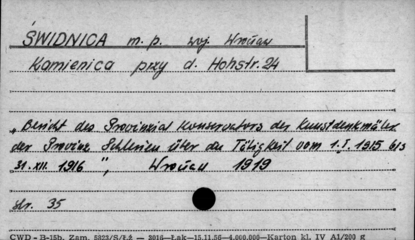 ŚWIDNICA m. p. woj. Wrocław
Kamienica przy d. Hohstr. 24
„Bericht des Provinzial Konservators der Kunstdenkmäler
der Provinz Schlesien über die Tätigkeit vom 1.I.1915 bis
31.XII. 1916", Wrocław 1919
str. 35
CWD - B-15b. Zam. 5823/S/Łż — 2016—Łak—15.11.56—4.000.000—Karton kl. IV A1/200 g